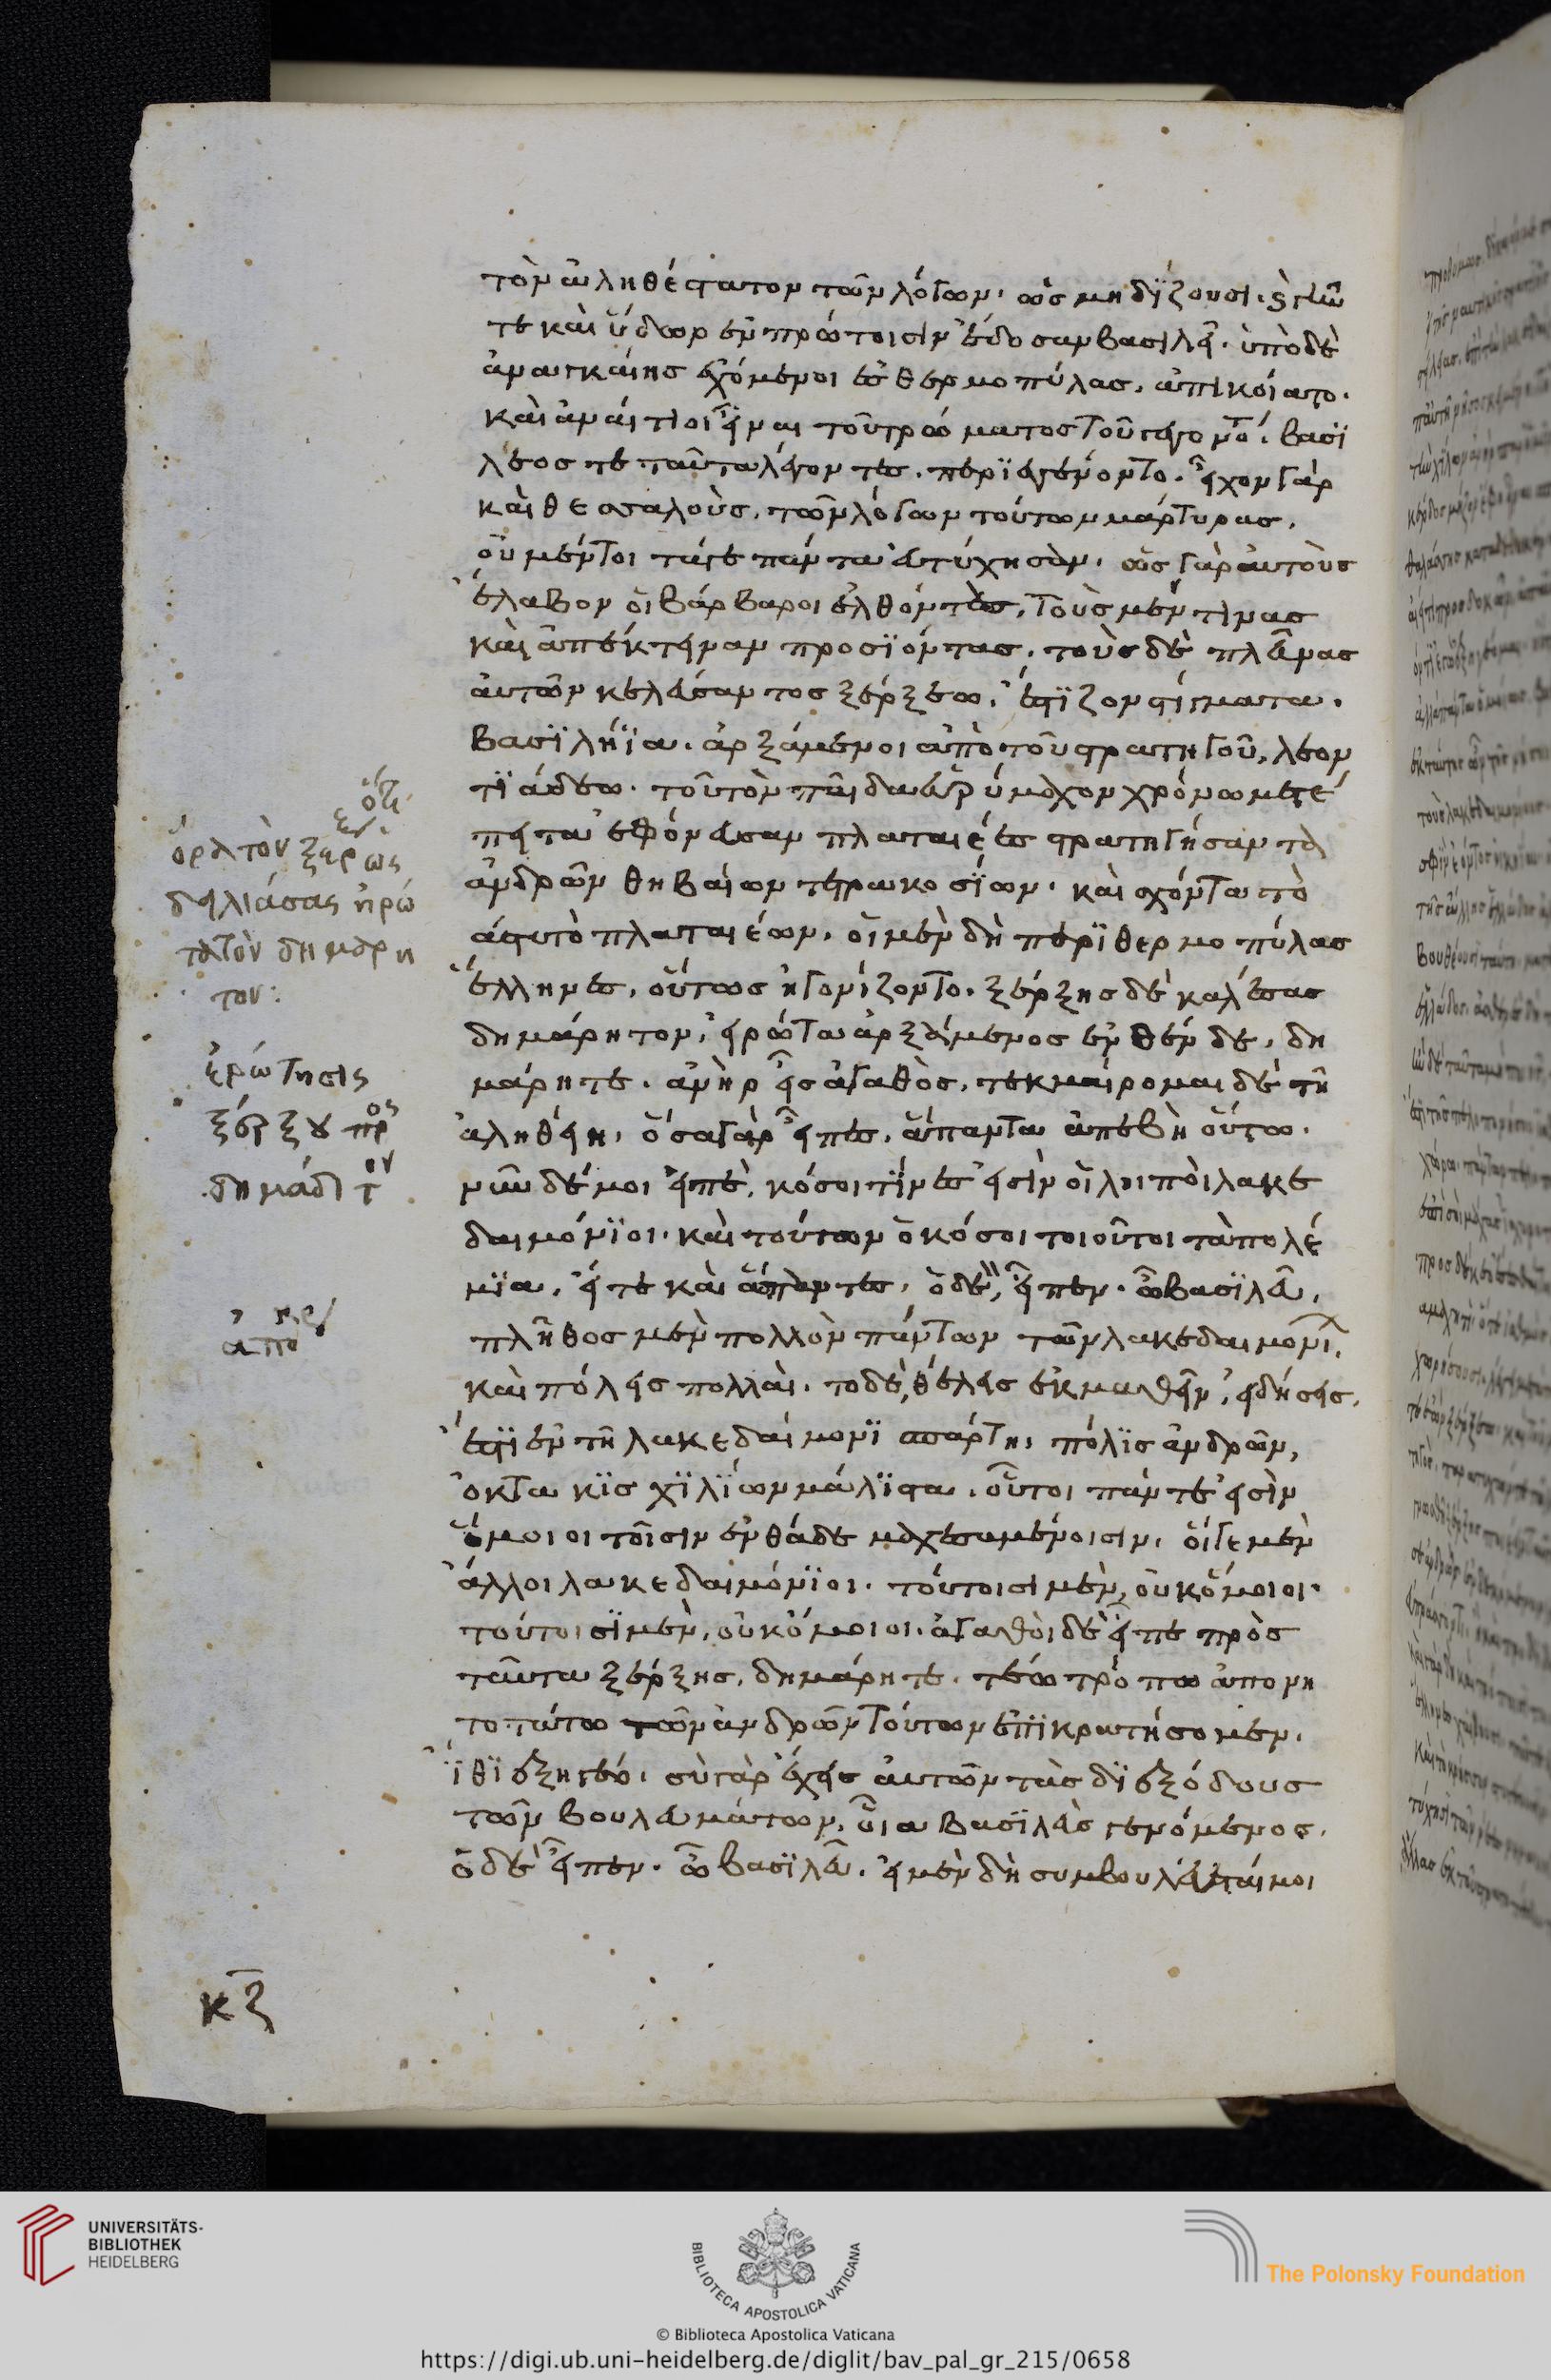 τὸν ἀληθέστατον τῶν λόγων· ὡς μηδΐζουσι· καὶ γῆν
τε καὶ ὕδωρ ἐν πρώτοισιν ἔδοσαν βασιλεῖ· ὑπὸ δὲ
ἀναγκαίης ἐχόμενοι ἐς θερμοπύλας, ἀπικοίατο·
καὶ ἀναίτιοι εἶναι τοῦ τρώματος τοῦ γεγονότος· βασϊ
λέος τε ταῦτα λέγοντες, περϊεγένοντο· εἶχον γὰρ
καὶ θεσσαλοὺς, τῶν λόγων τούτων μάρτυρας,
οὐ μέντοι τάγε πάντα εὐτύχησαν, ὡς γὰρ αὐτοὺς
ἔλαβον οἱ βάρβαροι ἐλθόντας, τοὺς μέν τινας
καὶ ἀπέκτειναν προσϊόντας, τοὺς δὲ πλεῦνας
αὐτῶν κελεύσαντος ξέρξεω, ἔστϊζον στίγματα·
βασϊλήϊα· ἀρξάμενοι ἀπὸ τοῦ στρατηγοῦ, λεον
τϊάδεω· τοῦ τὸν παῖδα εὐρύμαχον χρόνω μετέ
πειτα ἐφόνευσαν πλαταιέες στρατηγήσαντα
ἀνδρῶν θηβαίων τετρακοσΐων· καὶ σχόντα τὸ
ἄστυ τὸ πλαταιέων, οἱ μὲν δὴ περϊ θερμοπύλας
ἕλληνες, οὕτως ἠγονίζοντο· ξέρξης δὲ καλέσας
δημάρητον, εἰρώτα ἀρξάμενος ἐνθένδε, δη
μάρητε· ἀνὴρ εἶς ἀγαθὸς, τεκμαίρομαι δὲ τῆ
ἀληθείη, ὅσα γὰρ εἶπες, ἅπαντα ἀπέβη οὕτω·
νῦν δέ μοι εἰπὲ, κόσοι τϊνές εἰσιν οἱ λοιποὶ λακε
δαιμόνϊοι· καὶ τούτων ὁκόσοι τοιοῦτοι τὰ πολέ
μϊα, εἴτε καὶ ἅπαντες, ὁ δὲ, εἶπεν· ὦ βασϊλεῦ,
πλῆθος μὲν πολλὸν πάντων τῶν λακεδαιμονίων,
καὶ πόλεις πολλαὶ· το δὲ, θέλεις ἐκμαθεῖν, εἰδήσεις,
ἔστϊ ἐν τῆ λακεδαίμονϊ σπάρτη, πόλϊς ἀνδρῶν,
ὀκτακϊς χϊλΐων μάλϊστα, οὗτοι πάντέ εἰσὶν
ὅμοιοι τοῖσιν ἐνθάδε μαχεσαμένοισιν, οἵγε μὲν
ἄλλοι λακεδαιμόνϊοι· τούτοισι μὲν, οὐκ ὅμοιοι·
τούτοισϊ μὲν, οὐκ ὅμοιοι. ἀγαθοὶ δὲ εἶπε πρὸς
ταῦτα ξέρξης, δημάρητε· τέω τρόπω ἀπονη
τοτάτω τῶν ἀνδρῶν τούτων ἐπϊκρατήσομεν,
ἴθϊ ἐξηγέο, σὺ γὰρ ἔχεις αὐτῶν τὰς δϊεξόδους
τῶν βουλευμάτων, οἷα βασϊλεὺς γενόμενος,
ὁ δὲ εἶπεν· ὦ βασϊλεῦ· εἰ μὲν δὴ συμβουλεύεαί μοι
ὅρα τὸν ξερ
ὅτι
δειλιάσας ἠρώ
τα τὸν δημάρη
τον:
ἐρώτησις
ξέρξου πρὸς
δημάρητον
κζ
UNIVERSITÄTS-
BIBLIOTHEK
HEIDELBERG
BIBLIOTECA APOSTOLICA VATICANA
The Polonsky Foundation
© Biblioteca Apostolica Vaticana
https://digi.ub.uni-heidelberg.de/diglit/bav_pal_gr_215/0658